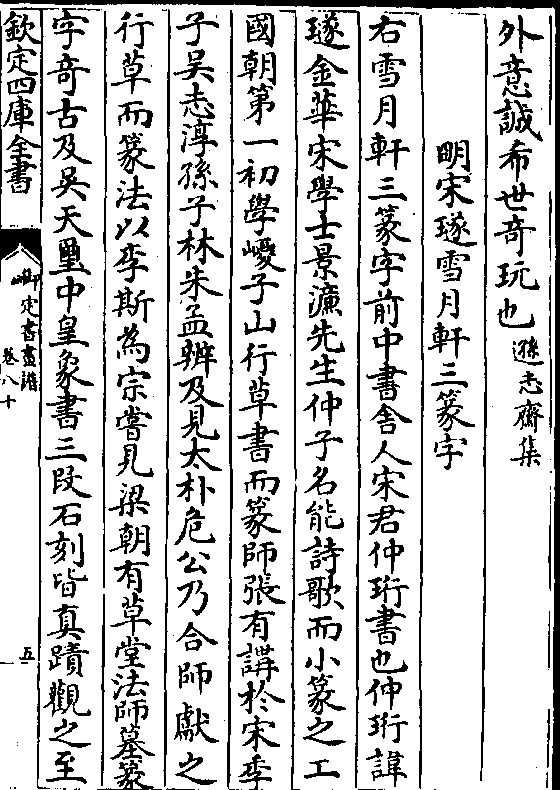 外意誠希世奇玩也遜志齋集
明宋璲雪月軒三篆字
右雪月軒三篆字前中書舍人宋君仲珩書也仲珩諱
璲金華宋學士景濂先生仲子名能詩歌而小篆之工
國朝第一初學巙子山行草書而篆師張有謙於宋季
子吳志淳孫子林朱孟辨及見太朴危公乃合師獻之
行草而篆法以李斯為宗嘗見梁朝有草堂法師墓篆
字奇古及吳天璽中皇象書三段石刻皆真蹟觀之至
欽定四庫全書
御定書畫譜
卷八十
五